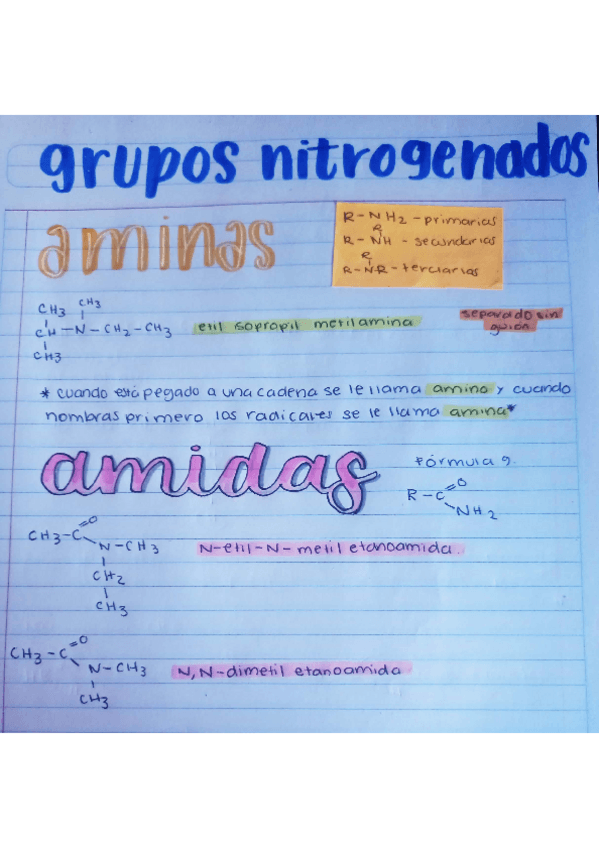 grupos nitrogenados
aminas
R-NH2 - primarias
R
R-NH - secundarias
R
R-N-R - terciarias
CH3 CH3
CH-N-CH2-CH3
CH3
etil isopropil metilamina
separado sin
guión
* cuando está pegado a una cadena se le llama amino y cuando
nombras primero los radicales se le llama amina*
amidas
Fórmula g.
O
R-C
NH2
O
CH3-C
N-CH3
CH2
CH3
N-etil-N-metil etanoamida.
O
CH3-C
N-CH3
CH3
N,N-dimetil etanoamida